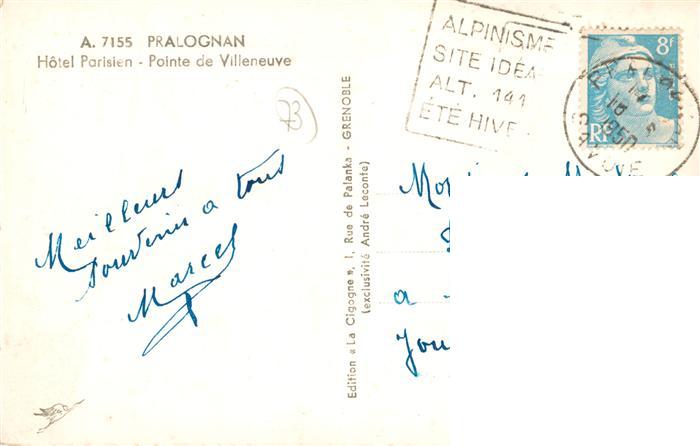 A. 7155 PRALOGNAN
Hôtel Parisien - Pointe de Villeneuve
73
Meilleurs
Souvenirs a tous
Marcel
Edition « La Cigogne », 1, Rue de Palanka - GRENOBLE
(exclusivité André Leconte)
ALPINISME
SITE IDÉA
ALT. 141
ÉTÉ HIVE
8F
RF
1950
a